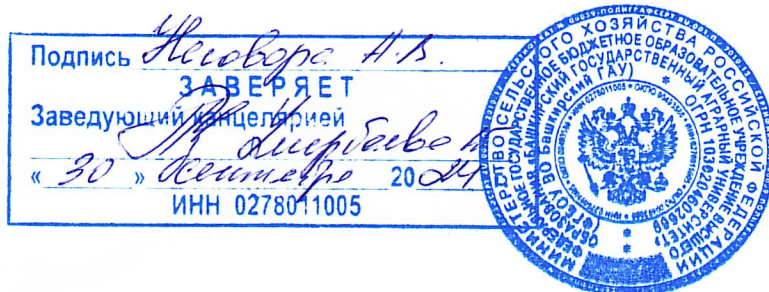 Подпись Неговора А.В.
ЗАВЕРЯЕТ
Заведующий канцелярией
« 30 » сентября 2024
ИНН 0278011005
МИНИСТЕРСТВО СЕЛЬСКОГО ХОЗЯЙСТВА РОССИЙСКОЙ ФЕДЕРАЦИИ
ФЕДЕРАЛЬНОЕ ГОСУДАРСТВЕННОЕ БЮДЖЕТНОЕ ОБРАЗОВАТЕЛЬНОЕ УЧРЕЖДЕНИЕ ВЫСШЕГО
ОБРАЗОВАНИЯ «БАШКИРСКИЙ ГОСУДАРСТВЕННЫЙ АГРАРНЫЙ УНИВЕРСИТЕТ»
(ФГБОУ ВО Башкирский ГАУ)